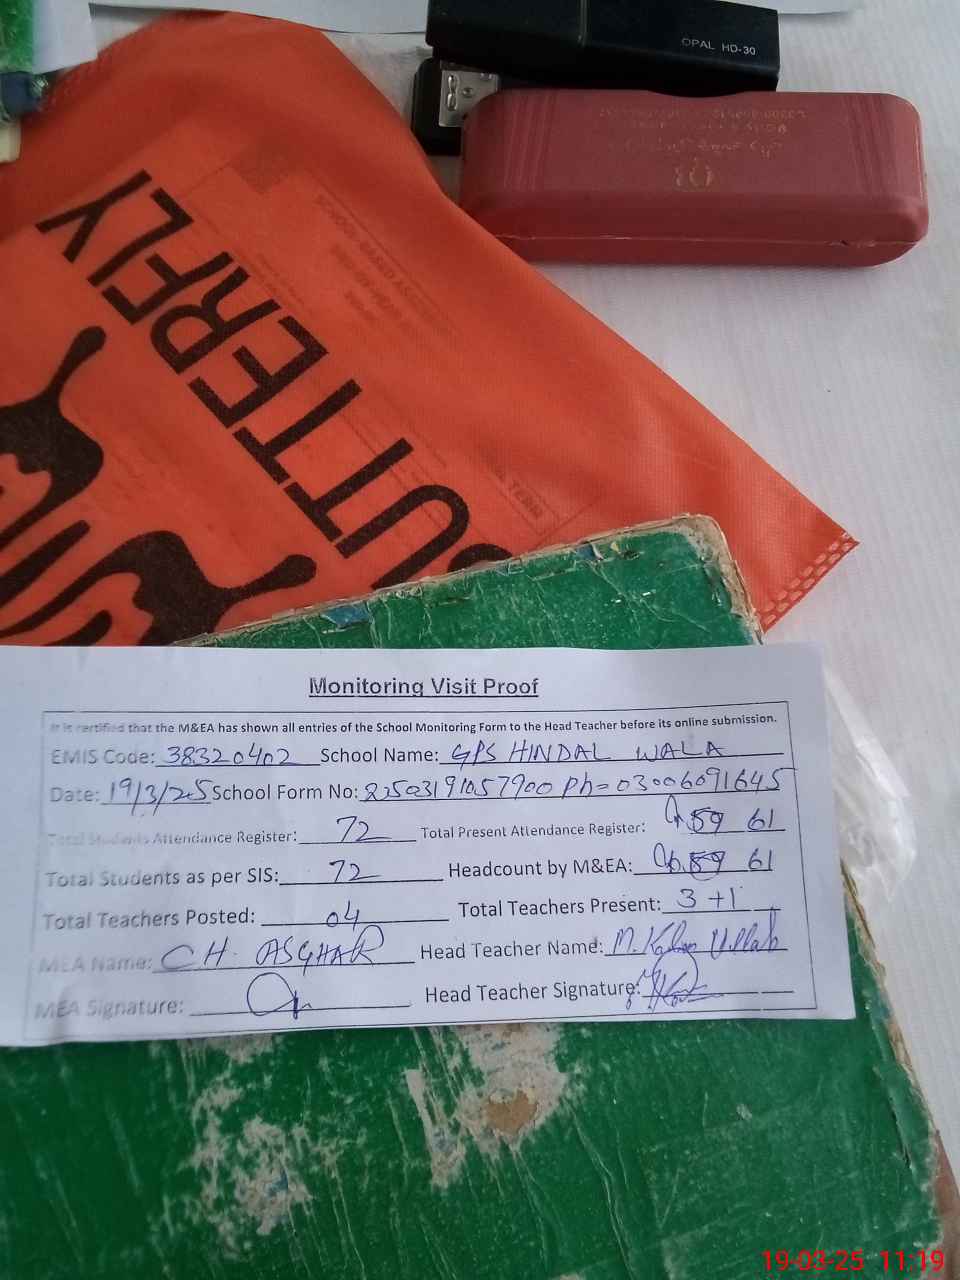 OPAL HD-30
BUTTERFLY
Monitoring Visit Proof
It is certified that the M&EA has shown all entries of the School Monitoring Form to the Head Teacher before its online submission.
EMIS Code: 38320402 School Name: GPS HINDAL WALA
Date: 19/3/25 School Form No: 82503191057900 Ph= 03006091645
Total Students Attendance Register: 72 Total Present Attendance Register: 59 61
Total Students as per SIS: 72 Headcount by M&EA: 59 61
Total Teachers Posted: 04 Total Teachers Present: 3 +1
MEA Name: CH. ASGHAR Head Teacher Name: M. Ullah
MEA Signature: Head Teacher Signature:
19-03-25 11:19